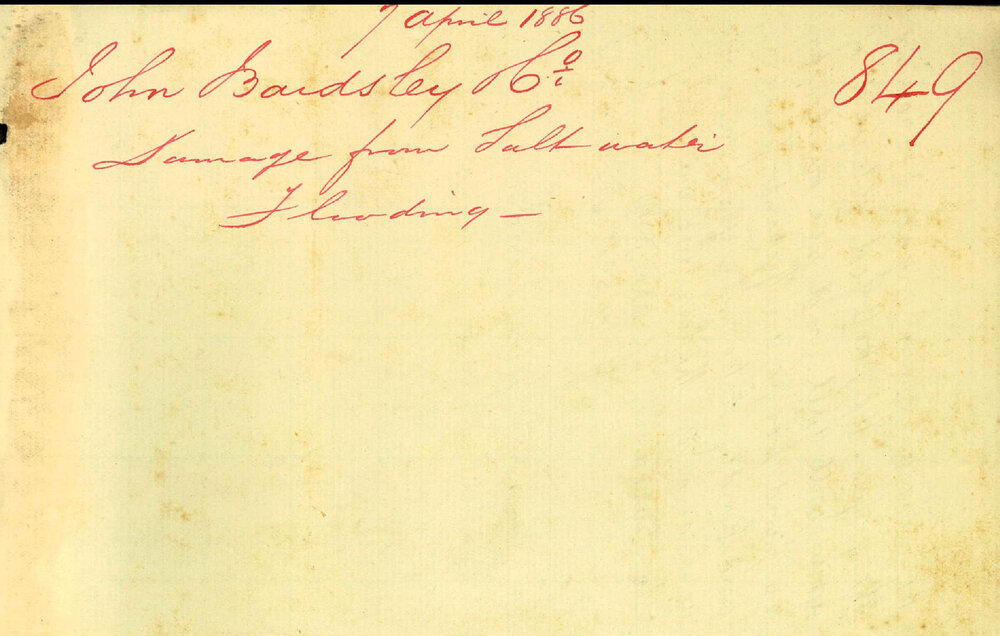 7 April 1886
John Bardsley & Co. 849
Damage from Salt water
Flooding —